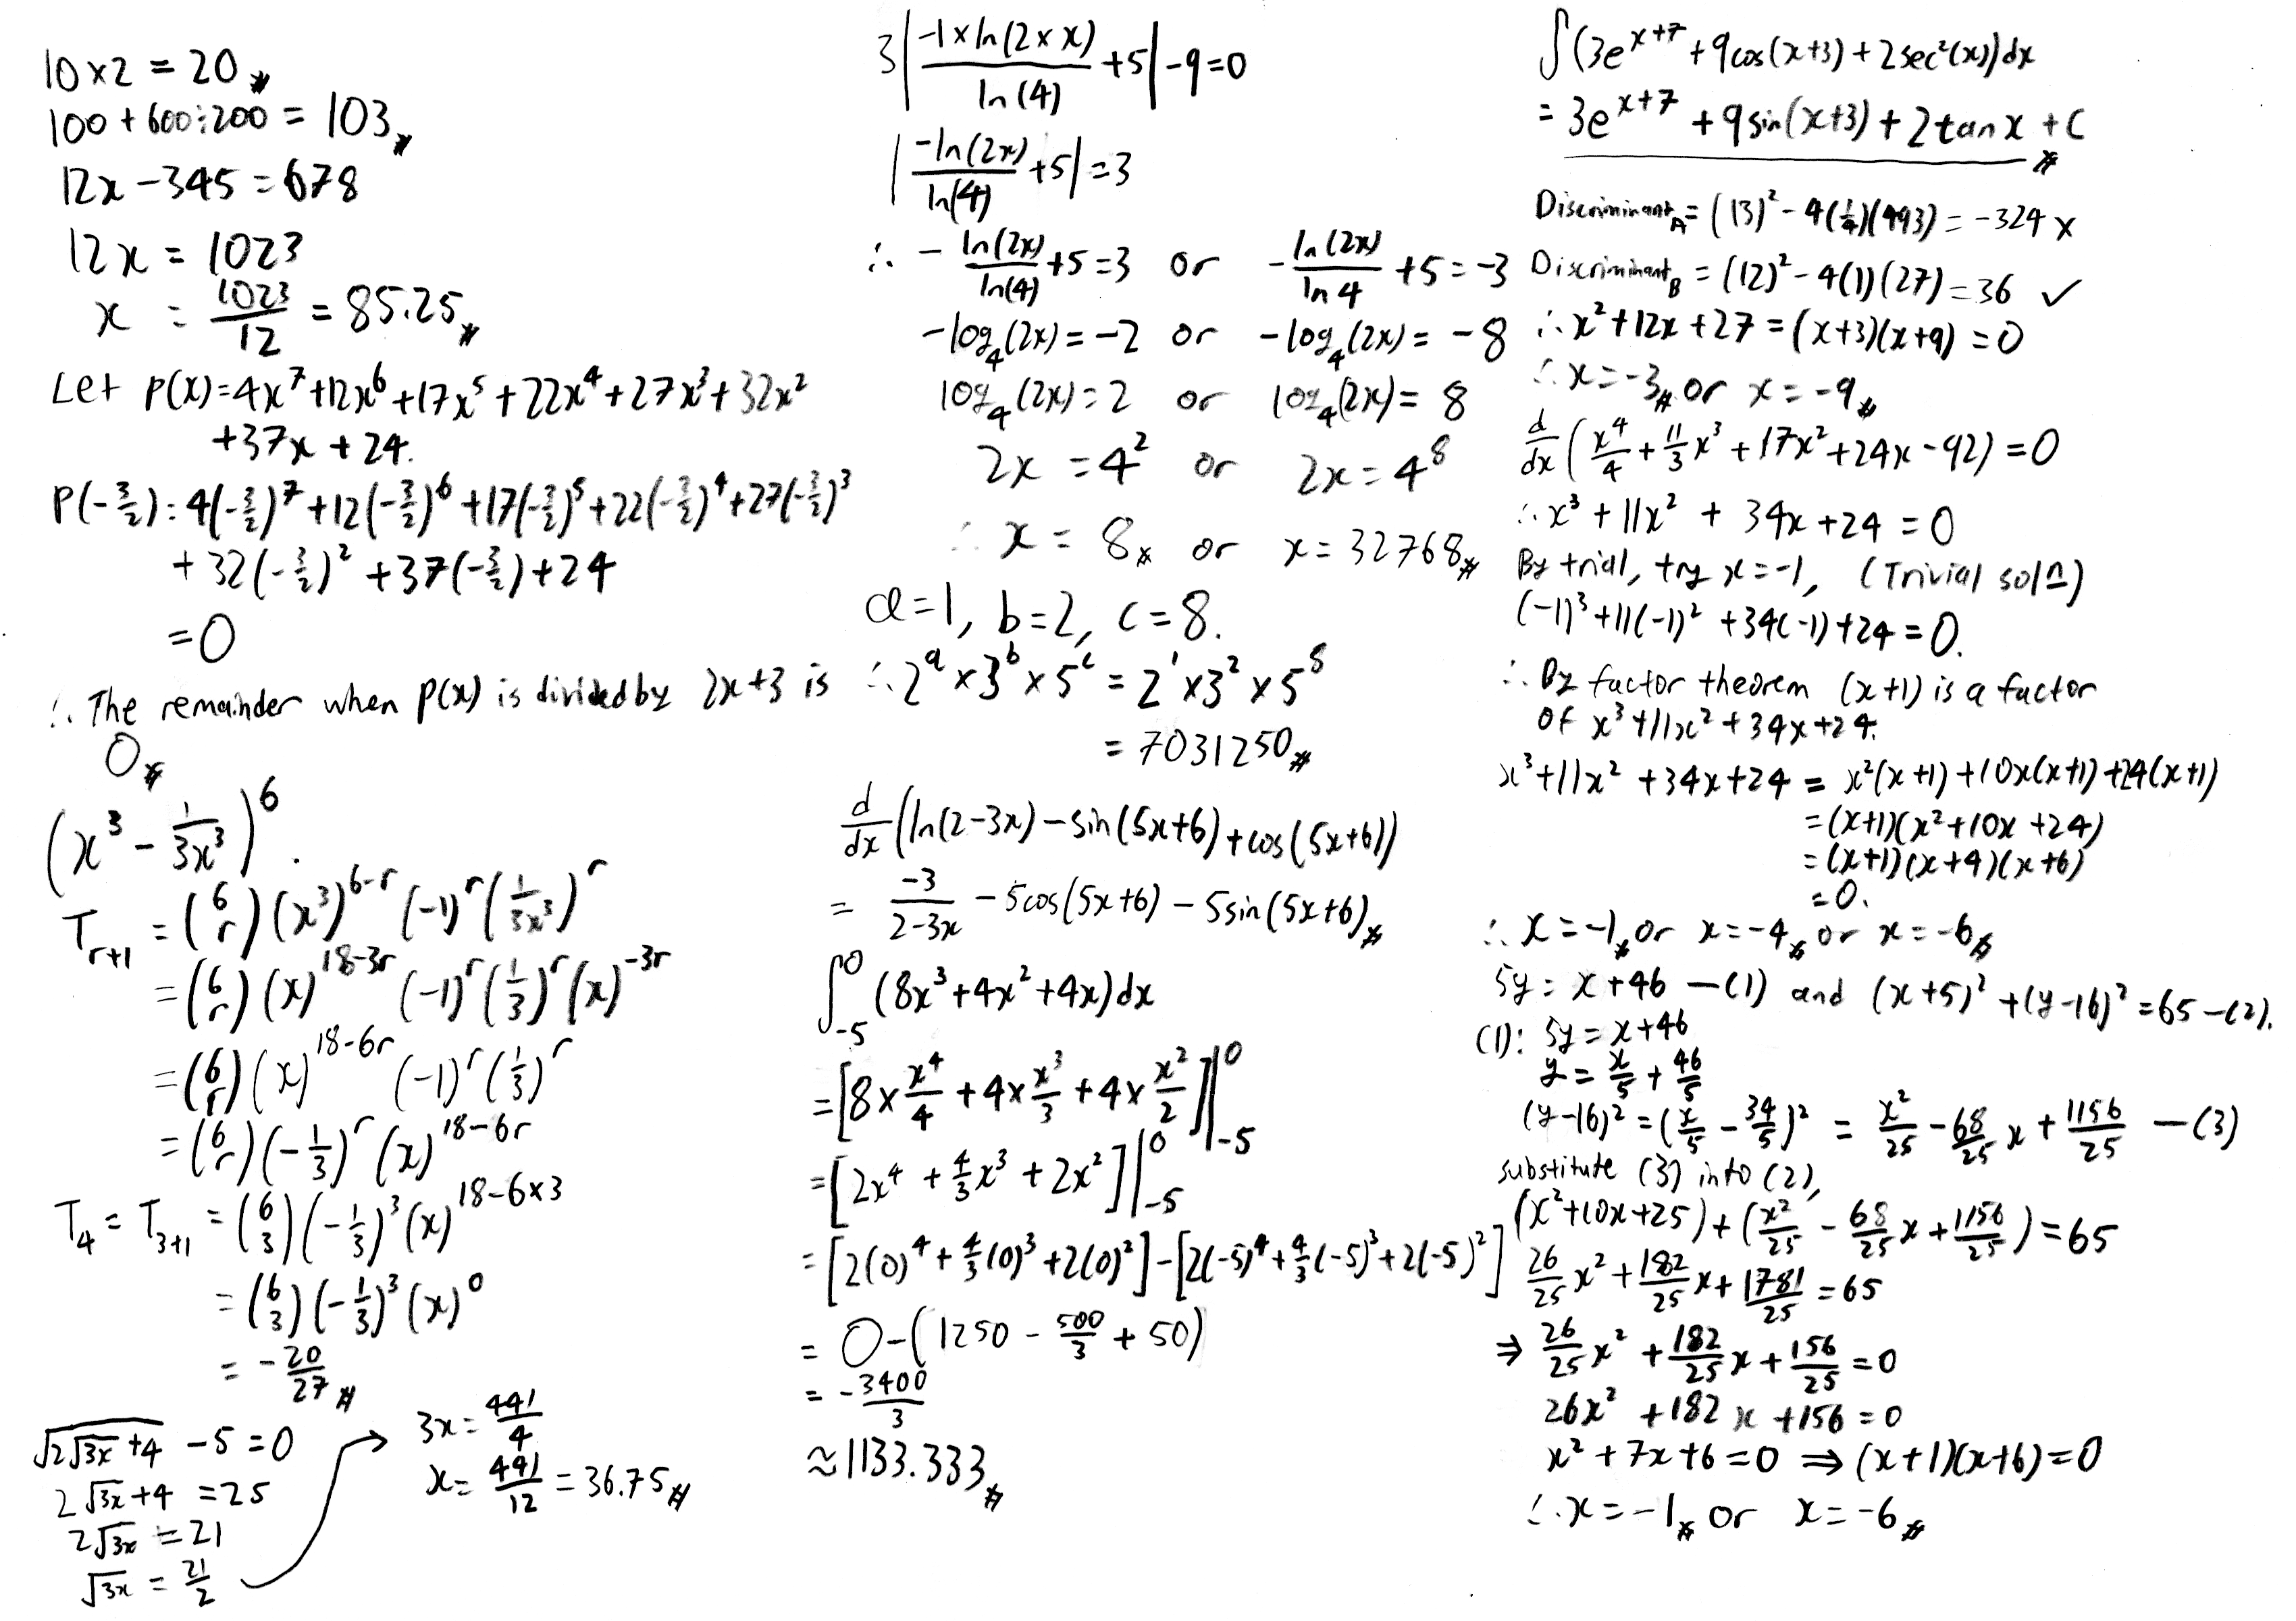 10×2 = 20 #
100 + 600÷200 = 103 #
12x − 345 = 678
12x = 1023
x = 1023/12 = 85.25 #
Let P(x)=4x⁷+12x⁶+17x⁵+22x⁴+27x³+32x²
+37x+24.
P(-3/2)=4(-3/2)⁷+12(-3/2)⁶+17(-3/2)⁵+22(-3/2)⁴+27(-3/2)³
+32(-3/2)²+37(-3/2)+24
=0
∴ The remainder when P(x) is divided by 2x+3 is
0 #
(x³ − 1/(3x³))⁶.
T_{r+1} = (6 r)(x³)^{6-r}(-1)^r(1/(3x³))^r
= (6 r)(x)^{18-3r}(-1)^r(1/3)^r(x)^{-3r}
= (6 r)(x)^{18-6r}(-1)^r(1/3)^r
= (6 r)(-1/3)^r(x)^{18-6r}
T₄ = T_{3+1} = (6 3)(-1/3)³(x)^{18-6×3}
= (6 3)(-1/3)³(x)⁰
= -20/27 #
√(2√(3x)+4) − 5 = 0
2√(3x)+4 = 25
2√(3x) = 21
√(3x) = 21/2 →
3x = 441/4
x = 441/12 = 36.75 #
3|(-1×ln(2×x))/ln(4) + 5| − 9 = 0
|-ln(2x)/ln(4) + 5| = 3
∴ -ln(2x)/ln(4) + 5 = 3 or -ln(2x)/ln 4 + 5 = -3
-log₄(2x) = -2 or -log₄(2x) = -8
log₄(2x) = 2 or log₄(2x) = 8
2x = 4² or 2x = 4⁸
∴ x = 8 # or x = 32768 #
a=1, b=2, c=8.
∴ 2^a × 3^b × 5^c = 2¹ × 3² × 5⁸
= 7031250 #
d/dx (ln(2-3x) − sin(5x+6) + cos(5x+6))
= -3/(2-3x) − 5cos(5x+6) − 5sin(5x+6) #
∫_{-5}^{0} (8x³+4x²+4x)dx
= [8×x⁴/4 + 4×x³/3 + 4×x²/2]|_{-5}^{0}
= [2x⁴ + 4/3 x³ + 2x²]|_{-5}^{0}
= [2(0)⁴ + 4/3(0)³ + 2(0)²] − [2(-5)⁴ + 4/3(-5)³ + 2(-5)²]
= 0 − (1250 − 500/3 + 50)
= -3400/3
≈ 1133.333 #
∫(3e^{x+7} + 9cos(x+3) + 2sec²(x))dx
= 3e^{x+7} + 9sin(x+3) + 2tan x + C #
Discriminant_A = (13)² − 4(1/4)(493) = -324 ×
Discriminant_B = (12)² − 4(1)(27) = 36 ✓
∴ x²+12x+27 = (x+3)(x+9) = 0
∴ x = -3 # or x = -9 #
d/dx (x⁴/4 + 11/3 x³ + 17x² + 24x − 92) = 0
∴ x³ + 11x² + 34x + 24 = 0
By trial, try x=-1, (Trivial solⁿ)
(-1)³+11(-1)²+34(-1)+24 = 0.
∴ By factor theorem (x+1) is a factor
of x³+11x²+34x+24.
x³+11x²+34x+24 = x²(x+1)+10x(x+1)+24(x+1)
= (x+1)(x²+10x+24)
= (x+1)(x+4)(x+6)
= 0.
∴ x = -1 # or x = -4 # or x = -6 #
5y = x+46 —(1) and (x+5)²+(y-16)² = 65 —(2).
(1): 5y = x+46
y = x/5 + 46/5
(y-16)² = (x/5 − 34/5)² = x²/25 − 68/25 x + 1156/25 —(3)
substitute (3) into (2),
(x²+10x+25) + (x²/25 − 68/25 x + 1156/25) = 65
26/25 x² + 182/25 x + 1781/25 = 65
⇒ 26/25 x² + 182/25 x + 156/25 = 0
26x² + 182x + 156 = 0
x² + 7x + 6 = 0 ⇒ (x+1)(x+6) = 0
∴ x = -1 # or x = -6 #